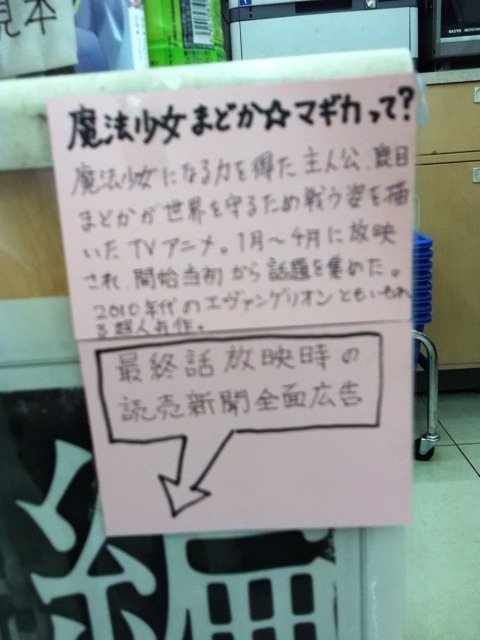 見本
魔法少女まどか☆マギカって?
魔法少女になる力を得た主人公、鹿目
まどかが世界を守るため戦う姿を描
いたTVアニメ。1月~4月に放映
され、開始当初から話題を集めた。
2010年代のエヴァンゲリオンともいわれ
る超人気作。
最終話放映時の
読売新聞全面広告
編